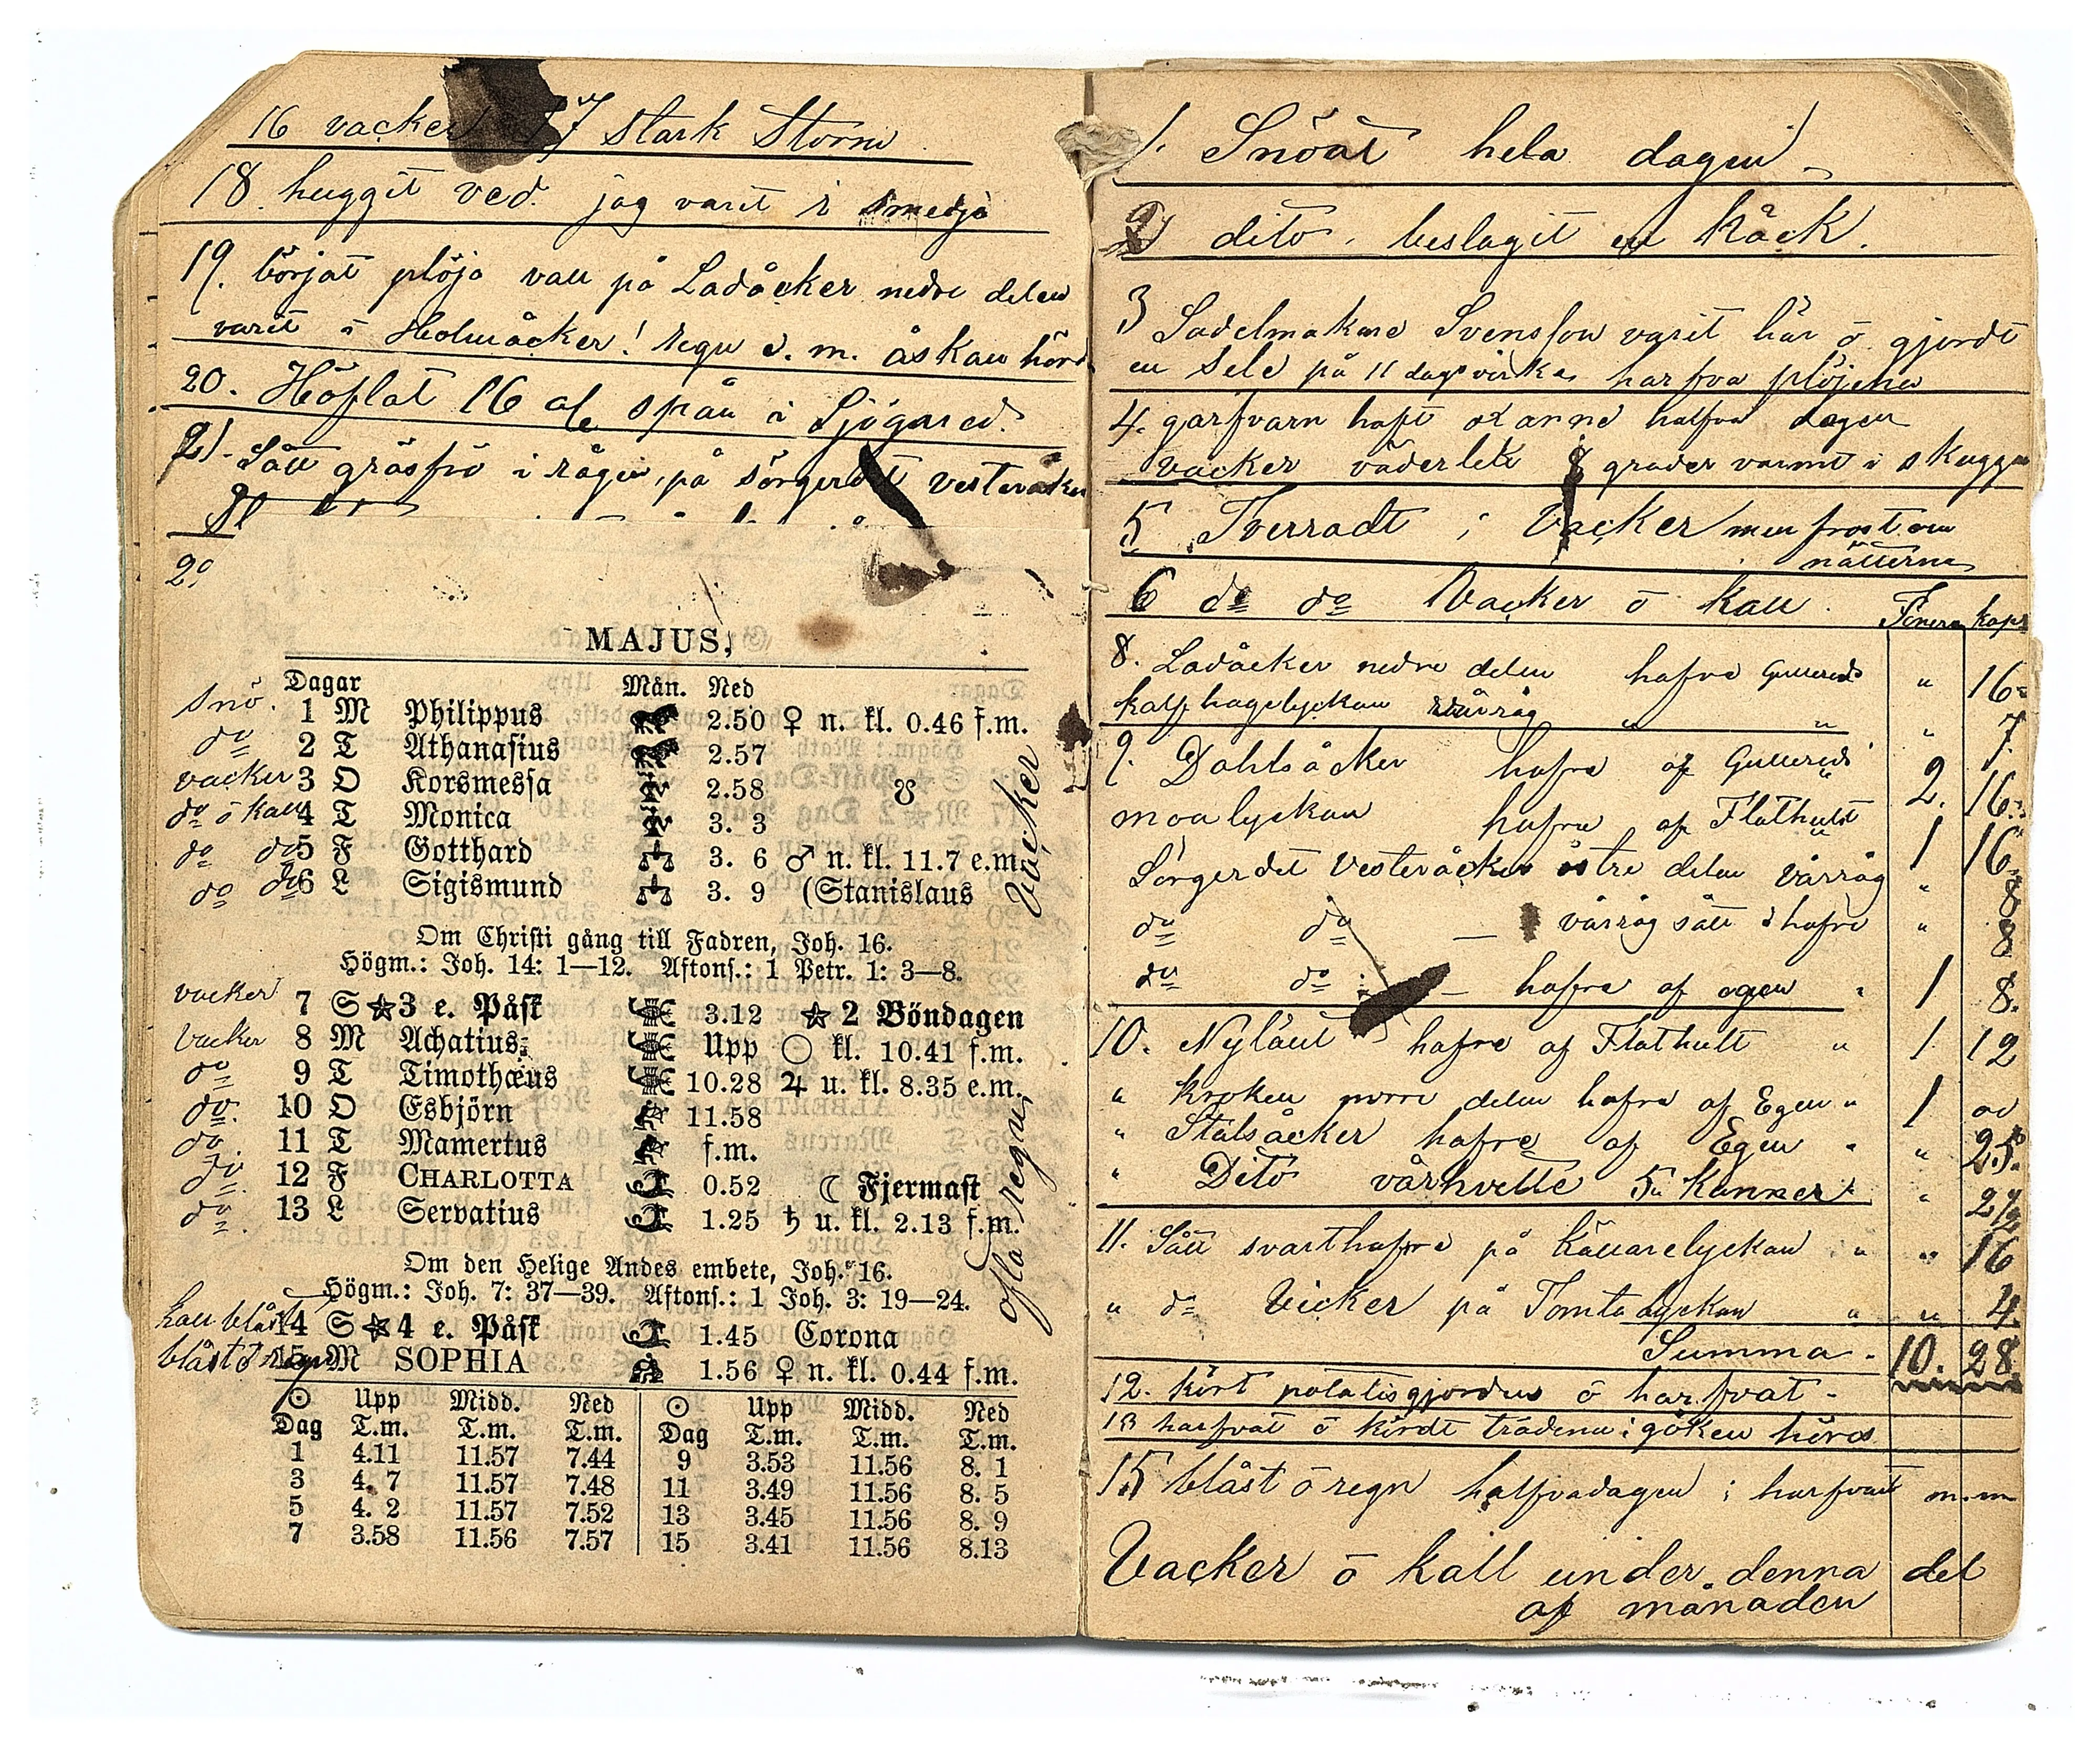 16 vacker 17 stark Storm
18. huggit ved. jag varit i smedja
19. börjat plöja vall på Ladåcker nedre delen
varit i Holmåcker! regn e. m. åskan hörd
20. Höflat 16 al spån i Sjögared.
21. Sått gräsfrö i rågen, på Sörgerdet Vesteråcker
MAJUS,
Dagar Mån. Ned
snö. 1 M Philippus 2.50 ♀ n. kl. 0.46 f.m.
do 2 T Athanasius 2.57
vacker 3 O Korsmessa 2.58 ☋
do ō kall 4 T Monica 3. 3
do do 5 F Gotthard 3. 6 ♂ n. kl. 11.7 e.m.
do do 6 L Sigismund 3. 9 (Stanislaus
Vacker
Om Christi gång till Fadren, Joh. 16.
Högm.: Joh. 14: 1—12. Aftons.: 1 Petr. 1: 3—8.
vacker 7 S ☆ 3 e. Påsk 3.12 ☆ 2 Böndagen
Vacker 8 M Achatius Upp ○ kl. 10.41 f.m.
do 9 T Timothæus 10.28 ♃ u. kl. 8.35 e.m.
do. 10 O Esbjörn 11.58
do 11 T Mamertus f.m.
do. 12 F CHARLOTTA 0.52 ☾ Fjermast
do. 13 L Servatius 1.25 ♄ u. kl. 2.13 f.m.
ofta regn
Om den Helige Andes embete, Joh. 16.
Högm.: Joh. 7: 37—39. Aftons.: 1 Joh. 3: 19—24.
kall blåst 14 S ☆ 4 e. Påsk 1.45 Corona
blåst ō regn 15 M SOPHIA 1.56 ♀ n. kl. 0.44 f.m.
☉ Upp Midd. Ned ☉ Upp Midd. Ned
Dag T.m. T.m. T.m. Dag T.m. T.m. T.m.
1 4.11 11.57 7.44 9 3.53 11.56 8. 1
3 4. 7 11.57 7.48 11 3.49 11.56 8. 5
5 4. 2 11.57 7.52 13 3.45 11.56 8. 9
7 3.58 11.56 7.57 15 3.41 11.56 8.13
1. Snöat hela dagen
2 dito, beslagit en
3 Sadelmakare Svensson varit här ō gjordt
en sele på 11 dagsvirke, harfva plöjena
4. garfvarn haft halfva dagen
vacker väderlek 8 grader varmt i skugga
5 Tverradt ; Vacker men frost om
nätterna
6 do do Vacker ō kall. kapr
8. Ladåcker nedre delen hafre Gullereds " 16
kalfhagelyckan vårråg " " " 7.
9. Dahlsåcker hafre af Gullereds 2. 16
moalyckan hafre af Flathult 1 16
Sörgerdet Vesteråcker östre delen vårråg " 8
do do — vårråg sått i hafre " 8
do do — hafre af egen " 1 8.
10. Nyländ hafre af Flathult " 1 12
" kroken norre delen hafre af Egen " 1
" Stålsåcker hafre af Egen " " 25.
" Dito vårhvette 5 Kannor " " 2½
11. Sått svarthafre på källarelyckan " " 16
" do Vicker på Tomtalyckan " " 4.
Summa 10. 28
12. kört potatisgjorden ō harfvat
13 harfvat ō kördt trädena ; göken hörd
15 blåst ō regn halfvadagen ; harfvat m.m
Vacker ō kall under denna del
af månaden